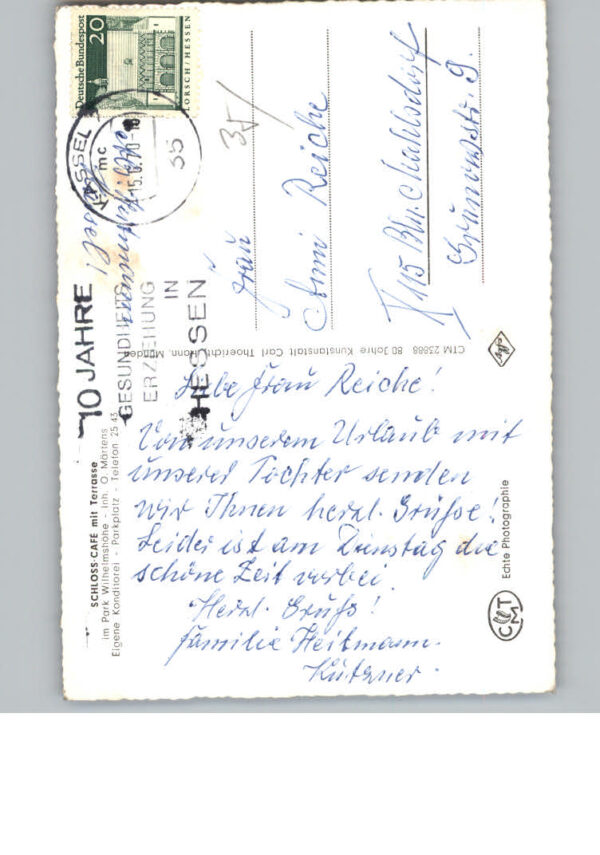 SCHLOSS-CAFÉ mit Terrasse
im Park Wilhelmshöhe - Inh. O. Märtens
Eigene Konditorei - Parkplatz - Telefon 25 43
10 JAHRE
GESUNDHEITS
ERZIEHUNG
IN
HESSEN
KASSEL
mc
35
Deutsche Bundespost
20
LORSCH/HESSEN
Liebe Frau Reiche!
Von unserem Urlaub mit
unserer Tochter senden
wir Ihnen herzl. Grüße!
Leider ist am Dienstag die
schöne Zeit vorbei.
Herzl. Gruß!
Familie Heitmann.
Kützner.
CTM 23688 80 Jahre Kunstanstalt Carl Thoericht, Hann. Münden
35/
Frau
Anni Reiche
X 115 Bln. Mahlsdorf
Grunowstr. 9.
Echte Photographie